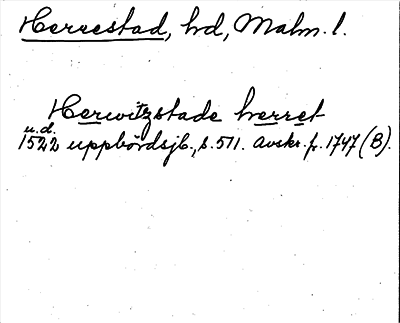 Herrestad, hd, Malm. l.
Herwitzstade herret
u.d.
1522 uppbördsjb., s. 511. Avskr. fr. 1747 (B).